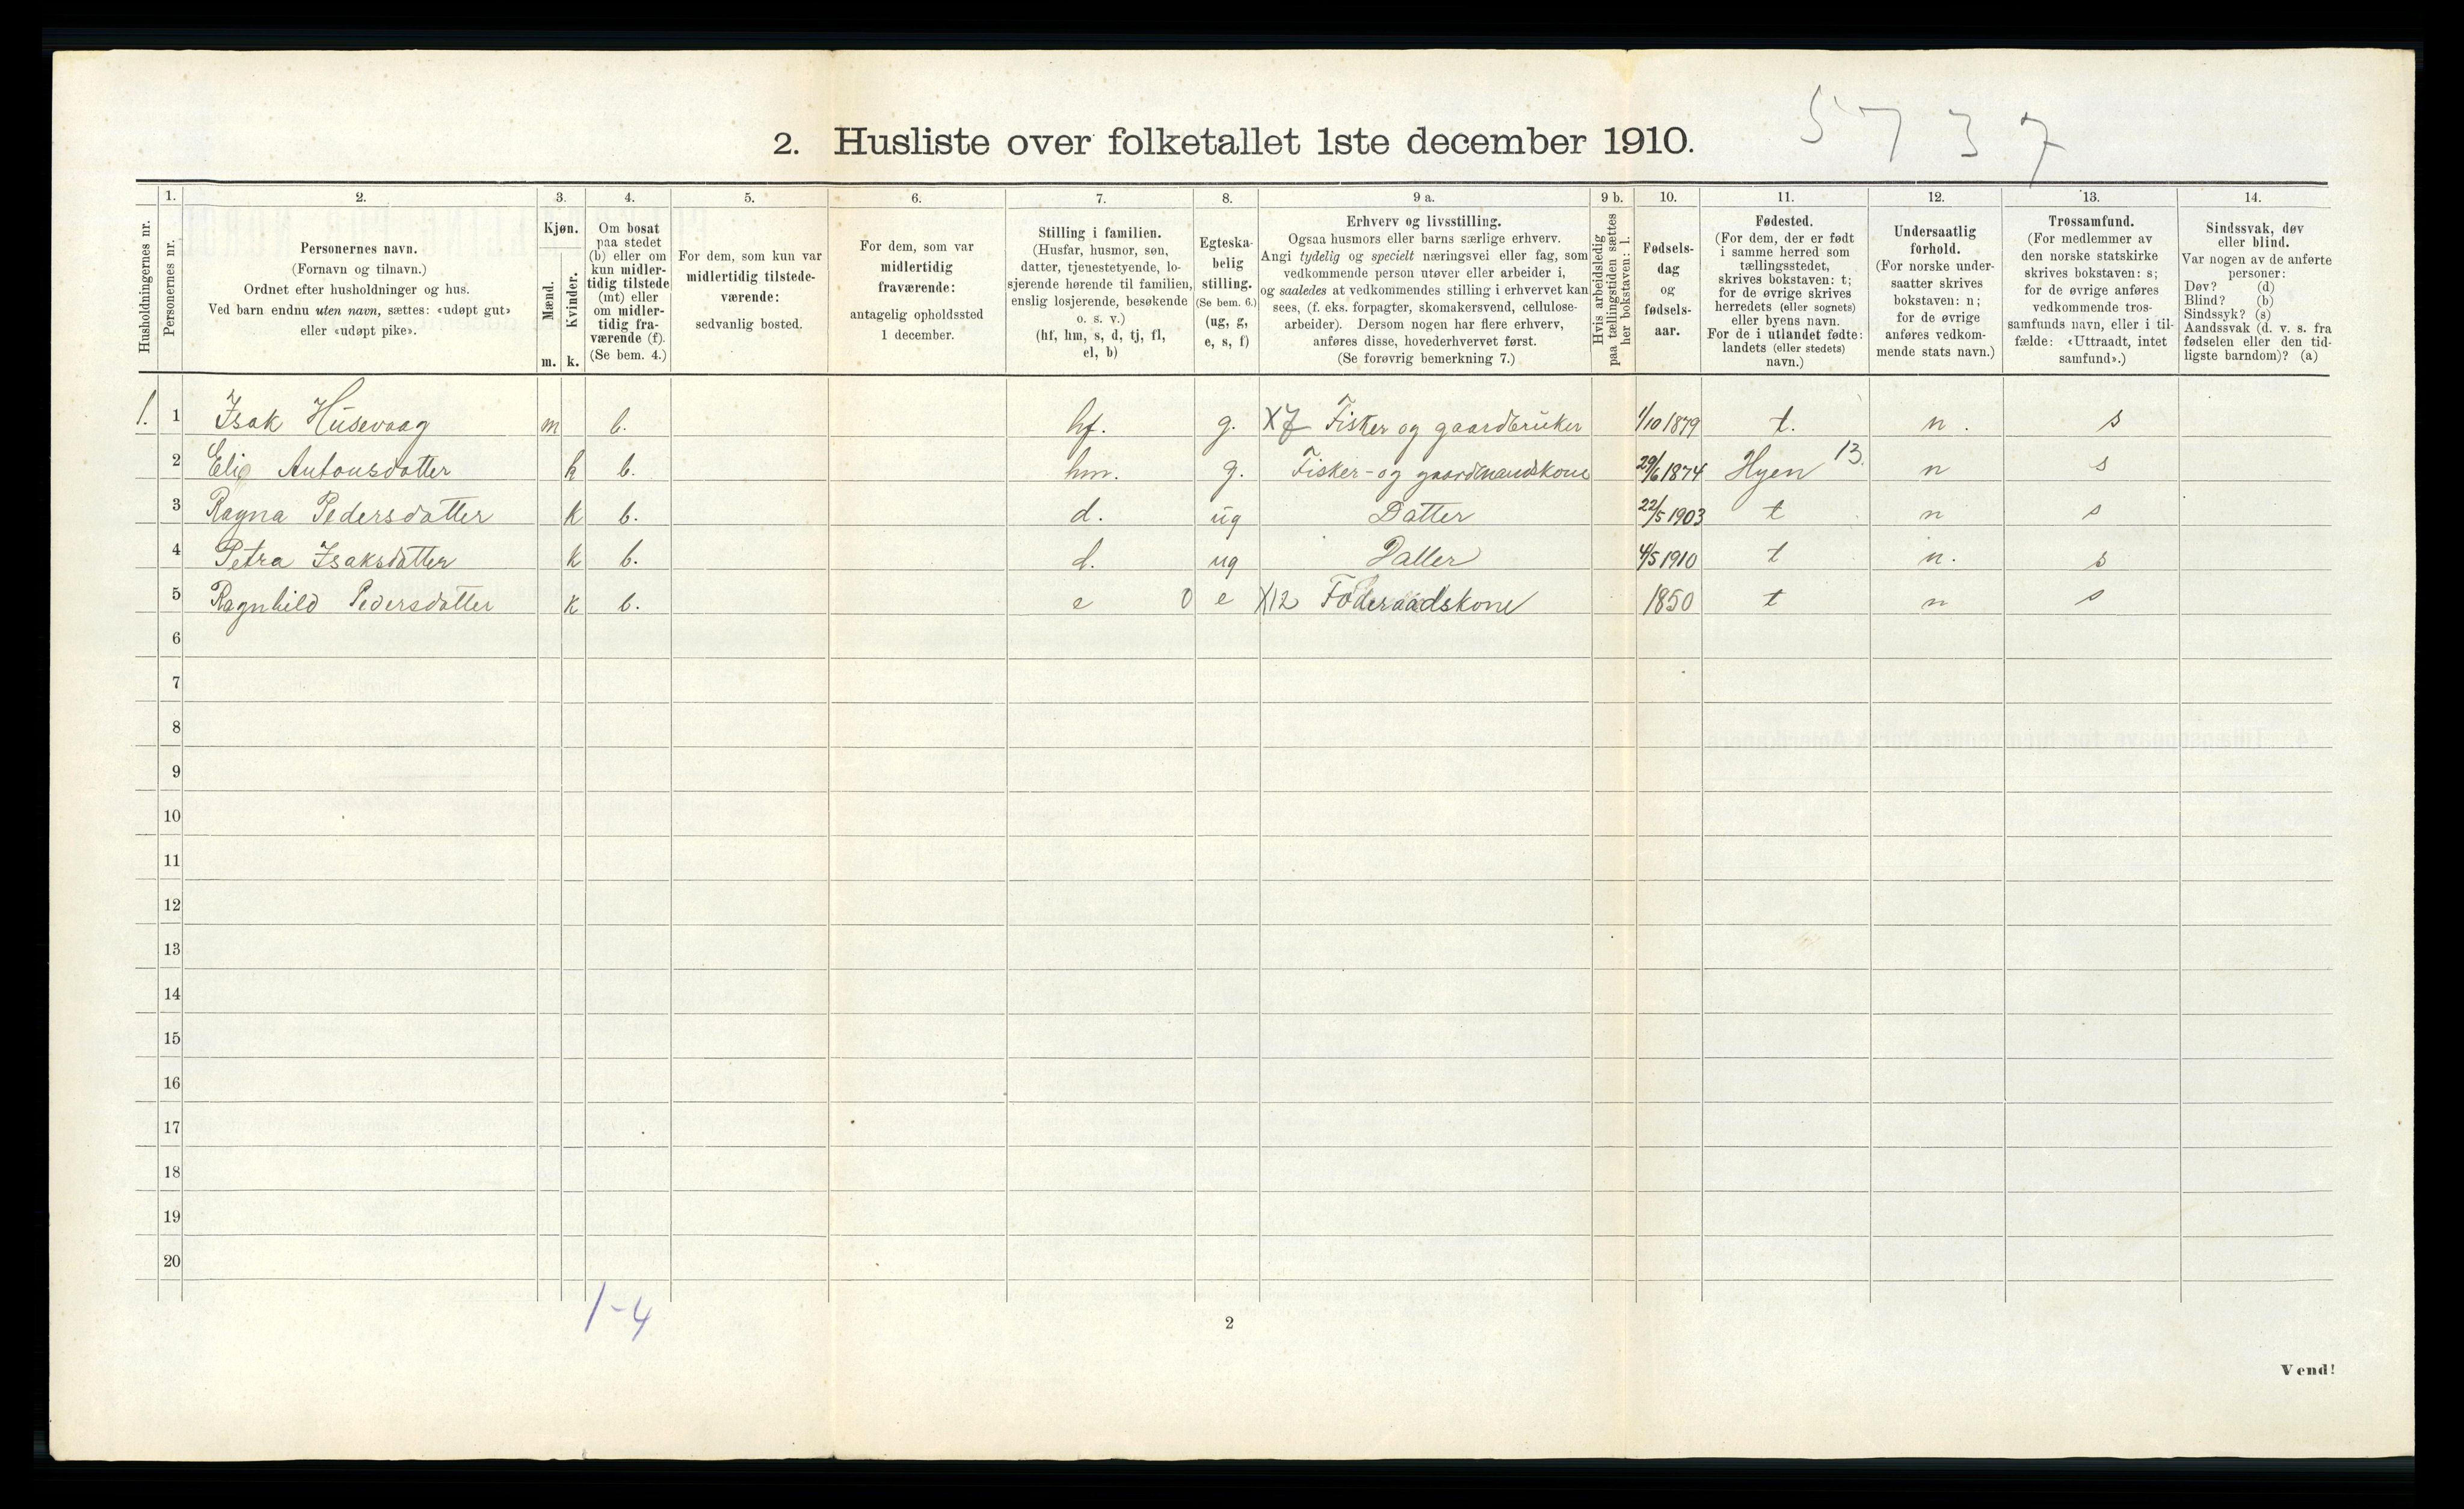 5737
2. Husliste over folketallet 1ste december 1910.
Husholdningernes nr.
1.
Personernes nr.
2.
Personernes navn.
(Fornavn og tilnavn.)
Ordnet efter husholdninger og hus.
Ved barn endnu uten navn, sættes: «udøpt gut»
eller «udøpt pike».
3.
Kjøn.
Mænd.
m.
Kvinder.
k.
4.
Om bosat
paa stedet
(b) eller om
kun midler-
tidig tilstede
(mt) eller
om midler-
tidig fra-
værende (f).
(Se bem. 4.)
5.
For dem, som kun var
midlertidig tilstede-
værende:
sedvanlig bosted.
6.
For dem, som var
midlertidig
fraværende:
antagelig opholdssted
1 december.
7.
Stilling i familien.
(Husfar, husmor, søn,
datter, tjenestetyende, lo-
sjerende hørende til familien,
enslig losjerende, besøkende
o. s. v.)
(hf, hm, s, d, tj, fl,
el, b)
8.
Egteska-
belig
stilling.
(Se bem. 6.)
(ug, g,
e, s, f)
9 a.
Erhverv og livsstilling.
Ogsaa husmors eller barns særlige erhverv.
Angi tydelig og specielt næringsvei eller fag, som
vedkommende person utøver eller arbeider i,
og saaledes at vedkommendes stilling i erhvervet kan
sees, (f. eks. forpagter, skomakersvend, cellulose-
arbeider). Dersom nogen har flere erhverv,
anføres disse, hovederhvervet først.
(Se forøvrig bemerkning 7.)
9 b.
Hvis arbeidsledig
paa tællingstiden sættes
her bokstaven: l.
10.
Fødsels-
dag
og
fødsels-
aar.
11.
Fødested.
(For dem, der er født
i samme herred som
tællingsstedet,
skrives bokstaven: t;
for de øvrige skrives
herredets (eller sognets)
eller byens navn.
For de i utlandet fødte:
landets (eller stedets)
navn.)
12.
Undersaatlig
forhold.
(For norske under-
saatter skrives
bokstaven: n;
for de øvrige
anføres vedkom-
mende stats navn.)
13.
Trossamfund.
(For medlemmer av
den norske statskirke
skrives bokstaven: s;
for de øvrige anføres
vedkommende tros-
samfunds navn, eller i til-
fælde: «Uttraadt, intet
samfund».)
14.
Sindssvak, døv
eller blind.
Var nogen av de anførte
personer:
Døv? (d)
Blind? (b)
Sindssyk? (s)
Aandssvak (d. v. s. fra
fødselen eller den tid-
ligste barndom)? (a)
1. 1 Isak Husevaag m b. hf. g. X7 Fisker og gaardbruker 1/10 1879 t. n. s
2 Elis Antonsdatter k b. hm. g. Fisker- og gaardmandskone 29/6 1874 Hyen 13. n s
3 Ragna Pedersdatter k b. d. ug Datter 22/5 1903 t n s
4 Petra Isaksdatter k b. d. ug Datter 4/5 1910 t n. s
5 Ragnhild Pedersdatter k b. e 0 e X12 Føderaadskone 1850 t n s
6
7
8
9
10
11
12
13
14
15
16
17
18
19
20
1-4
2
Vend!